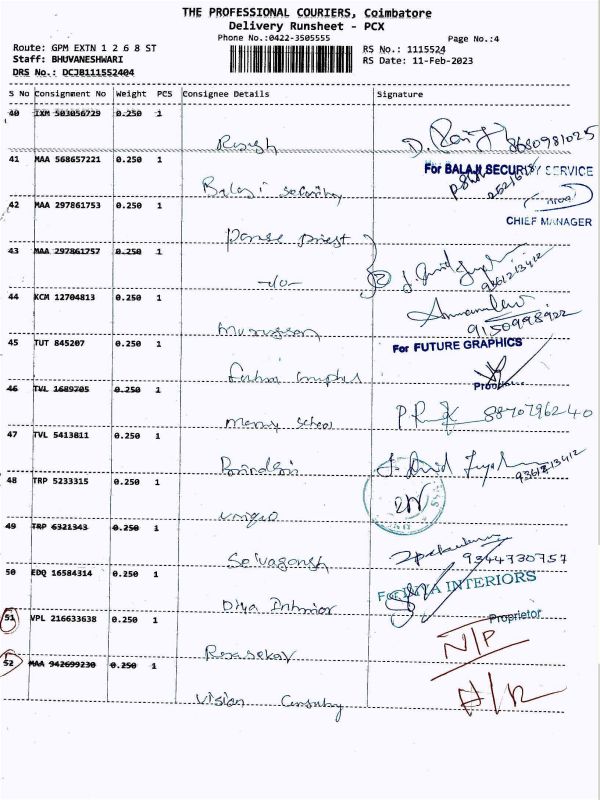 THE PROFESSIONAL COURIERS, Coimbatore
Delivery Runsheet - PCX
Phone No.:0422-3505555
Page No.:4
Route: GPM EXTN 1 2 6 8 ST
RS No.: 1115524
Staff: BHUVANESHWARI
RS Date: 11-Feb-2023
DRS No.: DCJB111552404
S No Consignment No Weight PCS Consignee Details Signature
40 IXM 503056729 0.250 1
8680981025
41 MAA 568657221 0.250 1
For BALAJI SECURITY SERVICE
Balaji security
42 MAA 297861753 0.250 1
CHIEF MANAGER
43 MAA 297861757 0.250 1
9361213412
44 KCM 12704813 0.250 1
9150998922
Murugesan
45 TUT 845207 0.250 1
For FUTURE GRAPHICS
46 TVL 1689705 0.250 1
8870796240
47 TVL 5413811 0.250 1
9361213412
48 TRP 5233315 0.250 1
unique
49 TRP 6321343 0.250 1
Selvaganesh
9344730757
50 EDQ 16584314 0.250 1
For DIYA INTERIORS
Diya Interior
Proprietor
51 VPL 216633638 0.250 1
N/P
Rajasekar
52 MAA 942699230 0.250 1
Vision